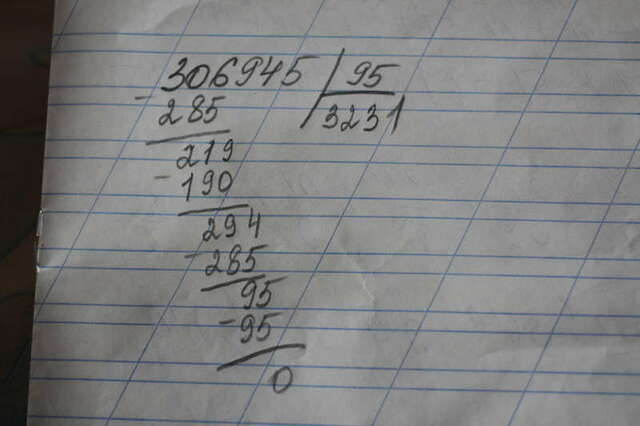 306945 95
- 285 3231
219
- 190
294
- 285
95
- 95
0